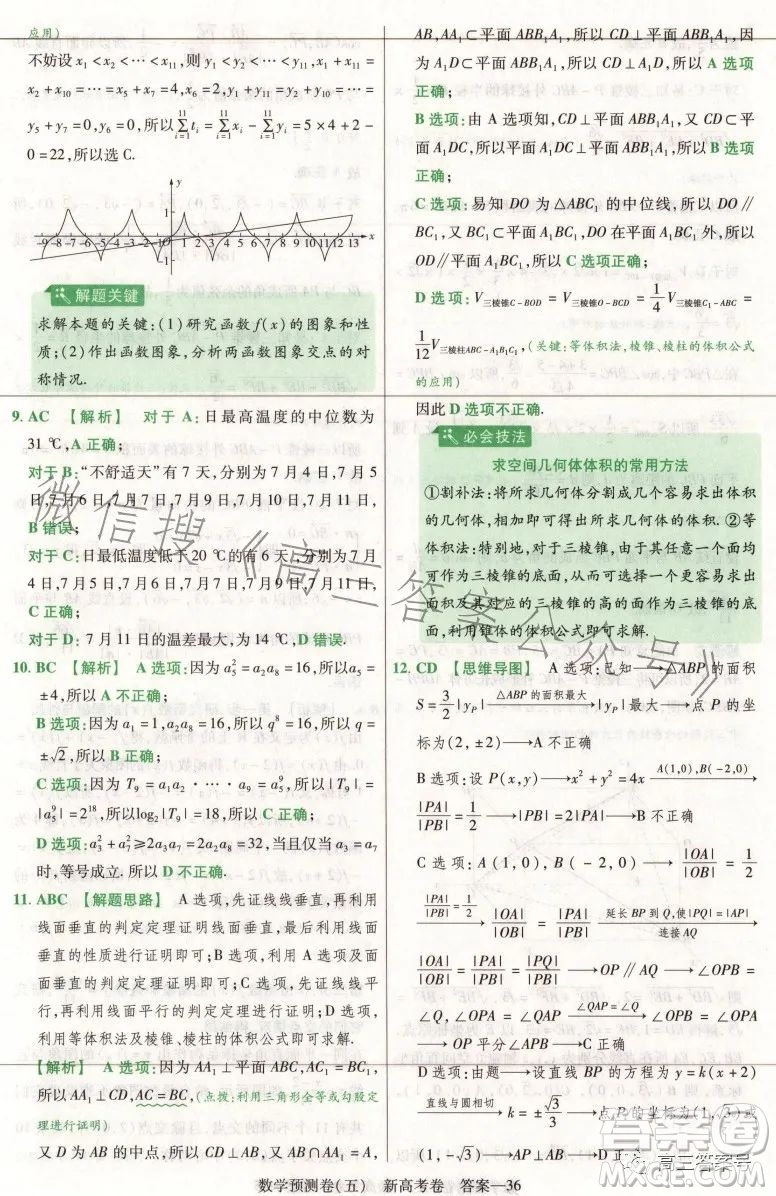 应用)
不妨设 x₁<x₂<⋯<x₁₁,则 y₁<y₂<⋯<y₁₁,x₁+x₁₁=
x₂+x₁₀=⋯=x₅+x₇=4,x₆=2,y₁+y₁₁=y₂+y₁₀=⋯=
y₅+y₇=0,y₆=0,所以 ∑(i=1→11) tᵢ= ∑(i=1→11) xᵢ- ∑(i=1→11) yᵢ=5×4+2-
0=22,所以选 C.
y
1
-9 -8 -7 -6 -5 -4 -3 -2 -1 0 1 2 3 4 5 6 7 8 9 10 11 12 13 x
-1
解题关键
求解本题的关键:(1)研究函数 f(x)的图象和性
质;(2)作出函数图象,分析两函数图象交点的对
称情况.
9. AC 【解析】 对于 A:日最高温度的中位数为
31 ℃,A 正确;
对于 B:“不舒适天”有 7 天,分别为 7 月 4 日,7 月 5
日,7 月 6 日,7 月 7 日,7 月 9 日,7 月 10 日,7 月 11 日,
B 错误;
对于 C:日最低温度低于 20 ℃的有 6 天,分别为 7 月
4 日,7 月 5 日,7 月 7 日,7 月 9 日,7 月 10 日,7 月 11 日,
C 正确;
对于 D:7 月 11 日的温差最大,为 14 ℃,D 错误.
10. BC 【解析】 A 选项:因为 a₅²=a₂a₈=16,所以 a₅=
±4,所以 A 不正确;
B 选项:因为 a₁=1,a₂a₈=16,所以 q⁸=16,所以 q=
±√2,所以 B 正确;
C 选项:因为 T₉=a₁a₂·⋯·a₉=a₅⁹,所以|T₉|=
|a₅⁹|=2¹⁸,所以log₂|T₉|=18,所以 C 正确;
D 选项:a₃²+a₇²≥2a₃a₇=2a₂a₈=32,当且仅当 a₃=a₇
时,等号成立.所以 D 不正确.
11. ABC 【解题思路】 A 选项,先证线线垂直,再利用
线面垂直的判定定理证明线面垂直,最后利用线面
垂直的性质进行证明即可;B 选项,利用 A 选项及面
面垂直的判定定理进行证明即可;C 选项,先证线线平
行,再利用线面平行的判定定理进行证明即可;D 选项,
利用等体积法及棱锥、棱柱的体积公式即可求解.
【解析】 A 选项:因为 AA₁⊥平面 ABC,AC₁=BC₁,
所以 AA₁⊥CD,AC=BC,(点拨:利用三角形全等或勾股定
理进行证明)
又 D 为 AB 的中点,所以 CD⊥AB,因为 AB∩AA₁=A,
AB,AA₁⊂平面 ABB₁A₁,所以 CD⊥平面 ABB₁A₁,因
为 A₁D⊂平面 ABB₁A₁,所以 CD⊥A₁D,所以 A 选项
正确;
B 选项:由 A 选项知,CD⊥平面 ABB₁A₁,又 CD⊂平
面 A₁DC,所以平面 A₁DC⊥平面 ABB₁A₁,所以 B 选项
正确;
C 选项:易知 DO 为△ABC₁ 的中位线,所以 DO∥
BC₁,又 BC₁⊂平面 ABC₁,DO 在平面 ABC₁ 外,所以
OD∥平面 ABC₁,所以 C 选项正确;
D 选项:V三棱锥C-BOD=V三棱锥O-BCD=1/4 V三棱锥C₁-ABC=
1/12 V三棱柱ABC-A₁B₁C₁,(关键:等体积法,棱锥、棱柱的体积公式
的应用)
因此 D 选项不正确.
必会技法
求空间几何体体积的常用方法
①割补法:将所求几何体分割成几个容易求出体积
的几何体,相加即可得出所求几何体的体积.②等
体积法:特别地,对于三棱锥,由于其任意一个面均
可作为三棱锥的底面,从而可将选择容易计算出底
面积及其对应的三棱锥的高的面作为三棱锥的底
面,利用锥体的体积公式即可求解.
12. CD 【思维导图】 A 选项:已知⟶△ABP 的面积
S=3/2|y_P| ⟶(△ABP 的面积最大) |y_P|最大⟶点 P 的坐
标为(2,±2)⟶A 不正确
B 选项:设 P(x,y)⟶x²+y²=4x ⟶(A(1,0),B(-2,0))
|PA|/|PB|=1/2⟶|PB|=2|PA|⟶B 不正确
C 选项:A(1,0),B(-2,0)⟶|OA|/|OB|=1/2
⟶(|PA|/|PB|=1/2) |OA|/|OB|=|PA|/|PB| ⟶(延长 BP 到 Q,使|PQ|=|AP| 连接 AQ)
|OA|/|OB|=|PA|/|PB|=|PQ|/|PB|⟶OP∥AQ⟶∠OPB=
∠Q,∠OPA=∠QAP ⟶(∠QAP=∠Q) ∠OPA=∠OPB
⟶OP 平分∠APB⟶C 正确
D 选项:由题⟶设直线 BP 的方程为 y=k(x+2)
⟶(直线与圆相切) k=±√3/3⟶点 P 的坐标为(1,√3)或
(1,-√3)⟶AP⊥AB⟶D 正确
数学预测卷(五) 新高考卷 答案—36
微信搜《高三答案公众号》
答案圈
高三答案号